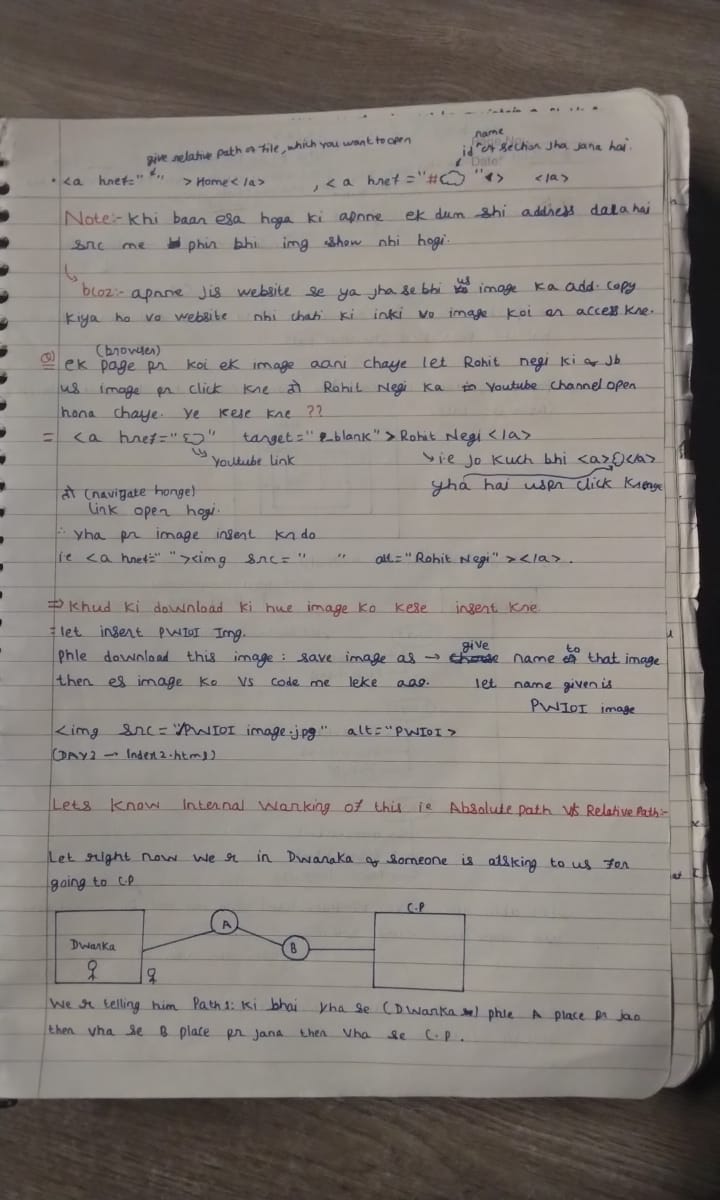 give relative path of file, which you want to open
name
id of section jha jana hai.
• <a href=" " > Home </a> , <a href = "# " > </a>
Note:- Khi baar esa hoga ki apnne ek dum shi address dala hai
src me phir bhi img show nhi hogi.
bcoz:- apnne jis website se ya jha se bhi us image ka add. copy
kiya ho vo website nhi chati ki inki vo image koi or access kre.
(browser)
Q) ek page pr koi ek image aani chaye let Rohit negi ki or jb
us image pr click kre to Rohit Negi ka Youtube channel open
hona chaye. ye kese kre ??
= <a href=" " target="_blank" > Rohit Negi </a>
Youtube link
ie jo kuch bhi <a> </a>
yha hai uspr click krenge
to (navigate honge)
link open hogi.
∴ yha pr image insert kr do
ie <a href=" "><img src=" " alt="Rohit Negi" ></a>.
⇒ Khud ki download ki hue image ko kese insert kre
= let insert PWIOI Img.
Phle download this image : save image as → give name to that image
then es image ko VS code me leke aao. let name given is
PWIOI image
<img src="/PWIOI image.jpg" alt="PWIOI >
(DAY2 → Index2.html)
Lets Know Internal Warking of this ie Absolute path Vs Relative Path:-
Let right now we r in Dwaraka or someone is atsking to us for
going to C.P
C.P
A
B
Dwarka
We r telling him Paths: ki bhai yha se (Dwarka se) phle A place pr jao
then vha se B place pr jana then vha se C.P.